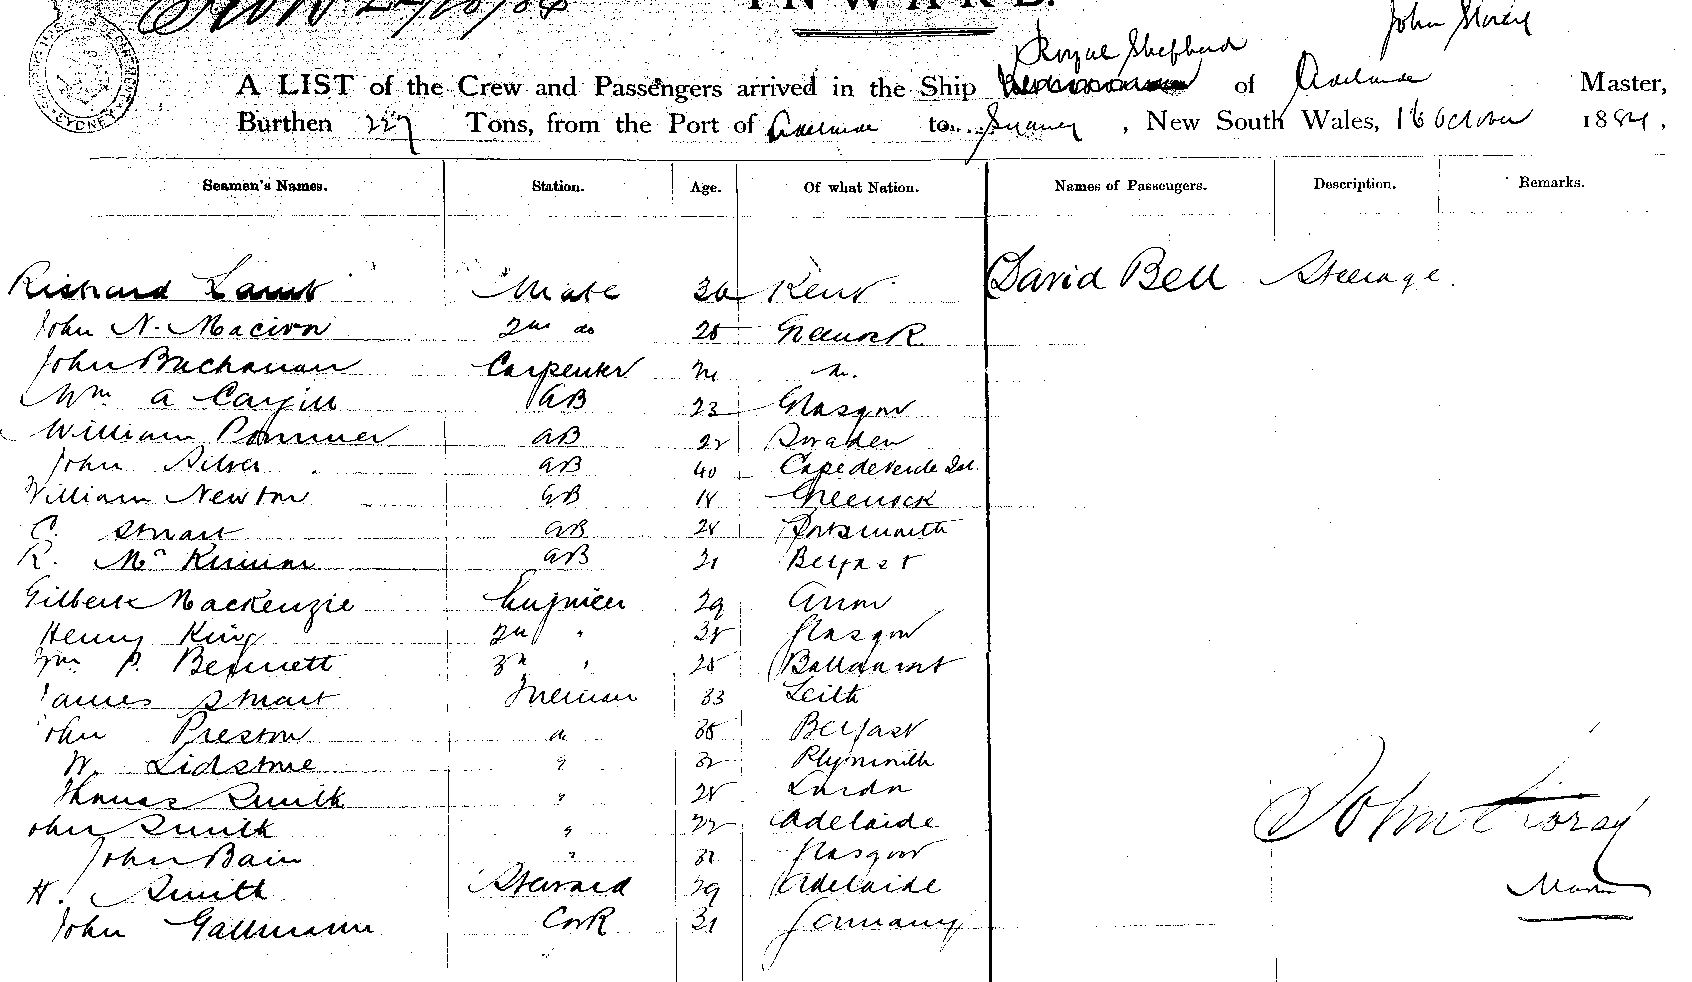 INWARD.
John Storey
Royal Shepherd
A LIST of the Crew and Passengers arrived in the Ship of Adelaide Master,
Burthen 227 Tons, from the Port of Adelaide to Sydney, New South Wales, 16 October 1884.
Seamen's Names. Station. Age. Of what Nation. Names of Passengers. Description. Remarks.
Richard Lamb Mate Kent David Bell Steerage.
John N. 2nd do Greenock
John Buchanan Carpenter
Wm A Cargill AB 23 Glasgow
William AB 22 Sweden
John Silver AB 40 Cape de Verde Isl.
William Newton AB 18 Greenock
C. Stuart AB 28 Portsmouth
R. AB 21 Belfast
Gilbert Mackenzie Engineer 29
Henry King 2nd " 38 Glasgow
Wm P. Bennett 3rd "
James Fireman 33 Leith
John Preston Belfast
W. Lidstone " 32 Plymouth
Thomas Smith " 28 London
John Smith " 22 Adelaide
John Bain " 32 Glasgow
H. Smith Steward 29 Adelaide
John Gallmann Cook 31 Germany
John Storey
Master
SYDNEY